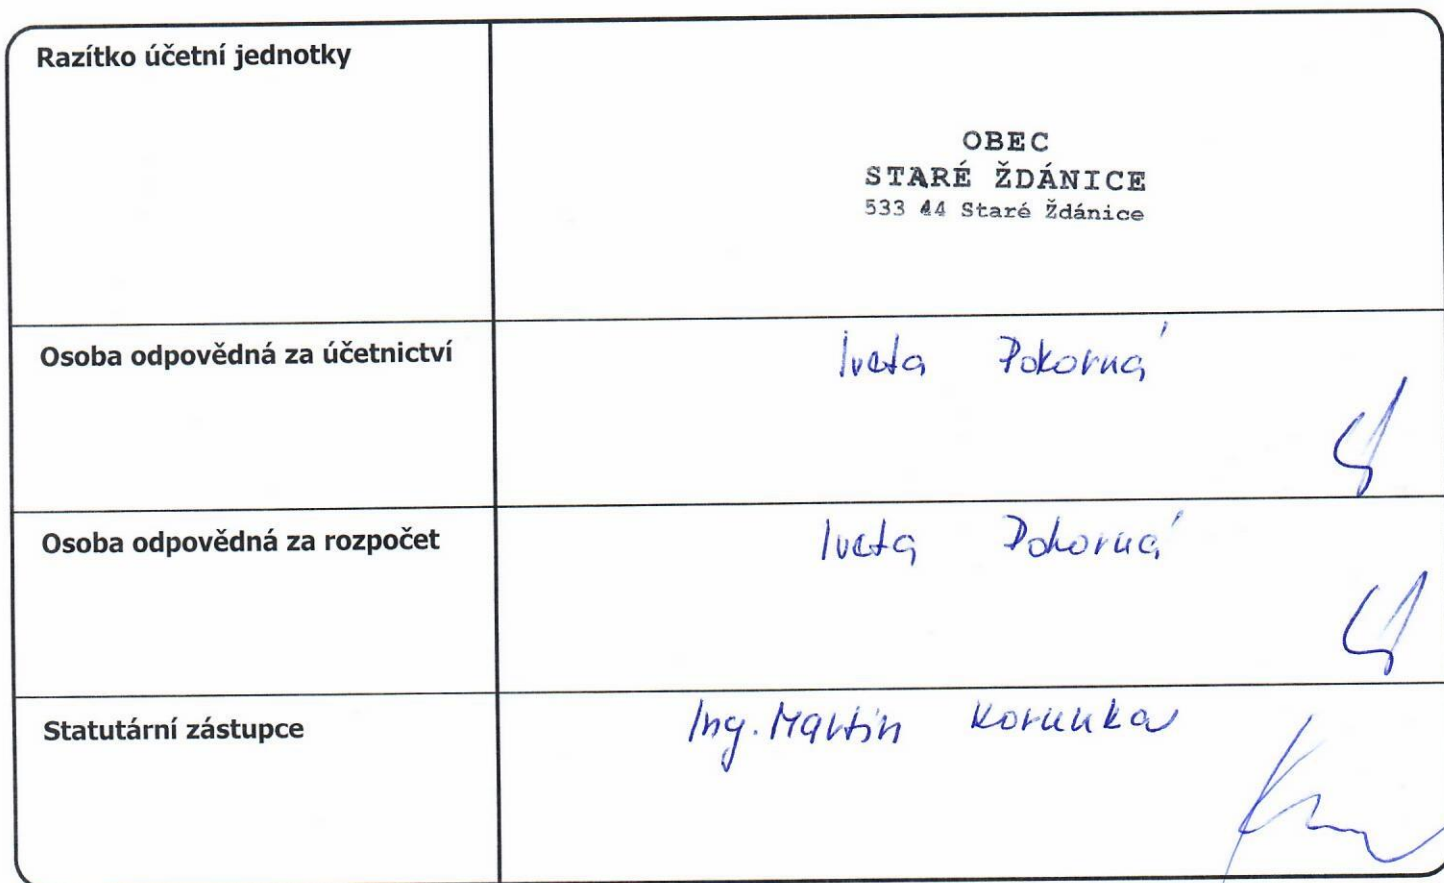 Razítko účetní jednotky
OBEC
STARÉ ŽDÁNICE
533 44 Staré Ždánice
Osoba odpovědná za účetnictví
Iveta Pokorná
Osoba odpovědná za rozpočet
Iveta Pokorná
Statutární zástupce
Ing. Martin Korunka